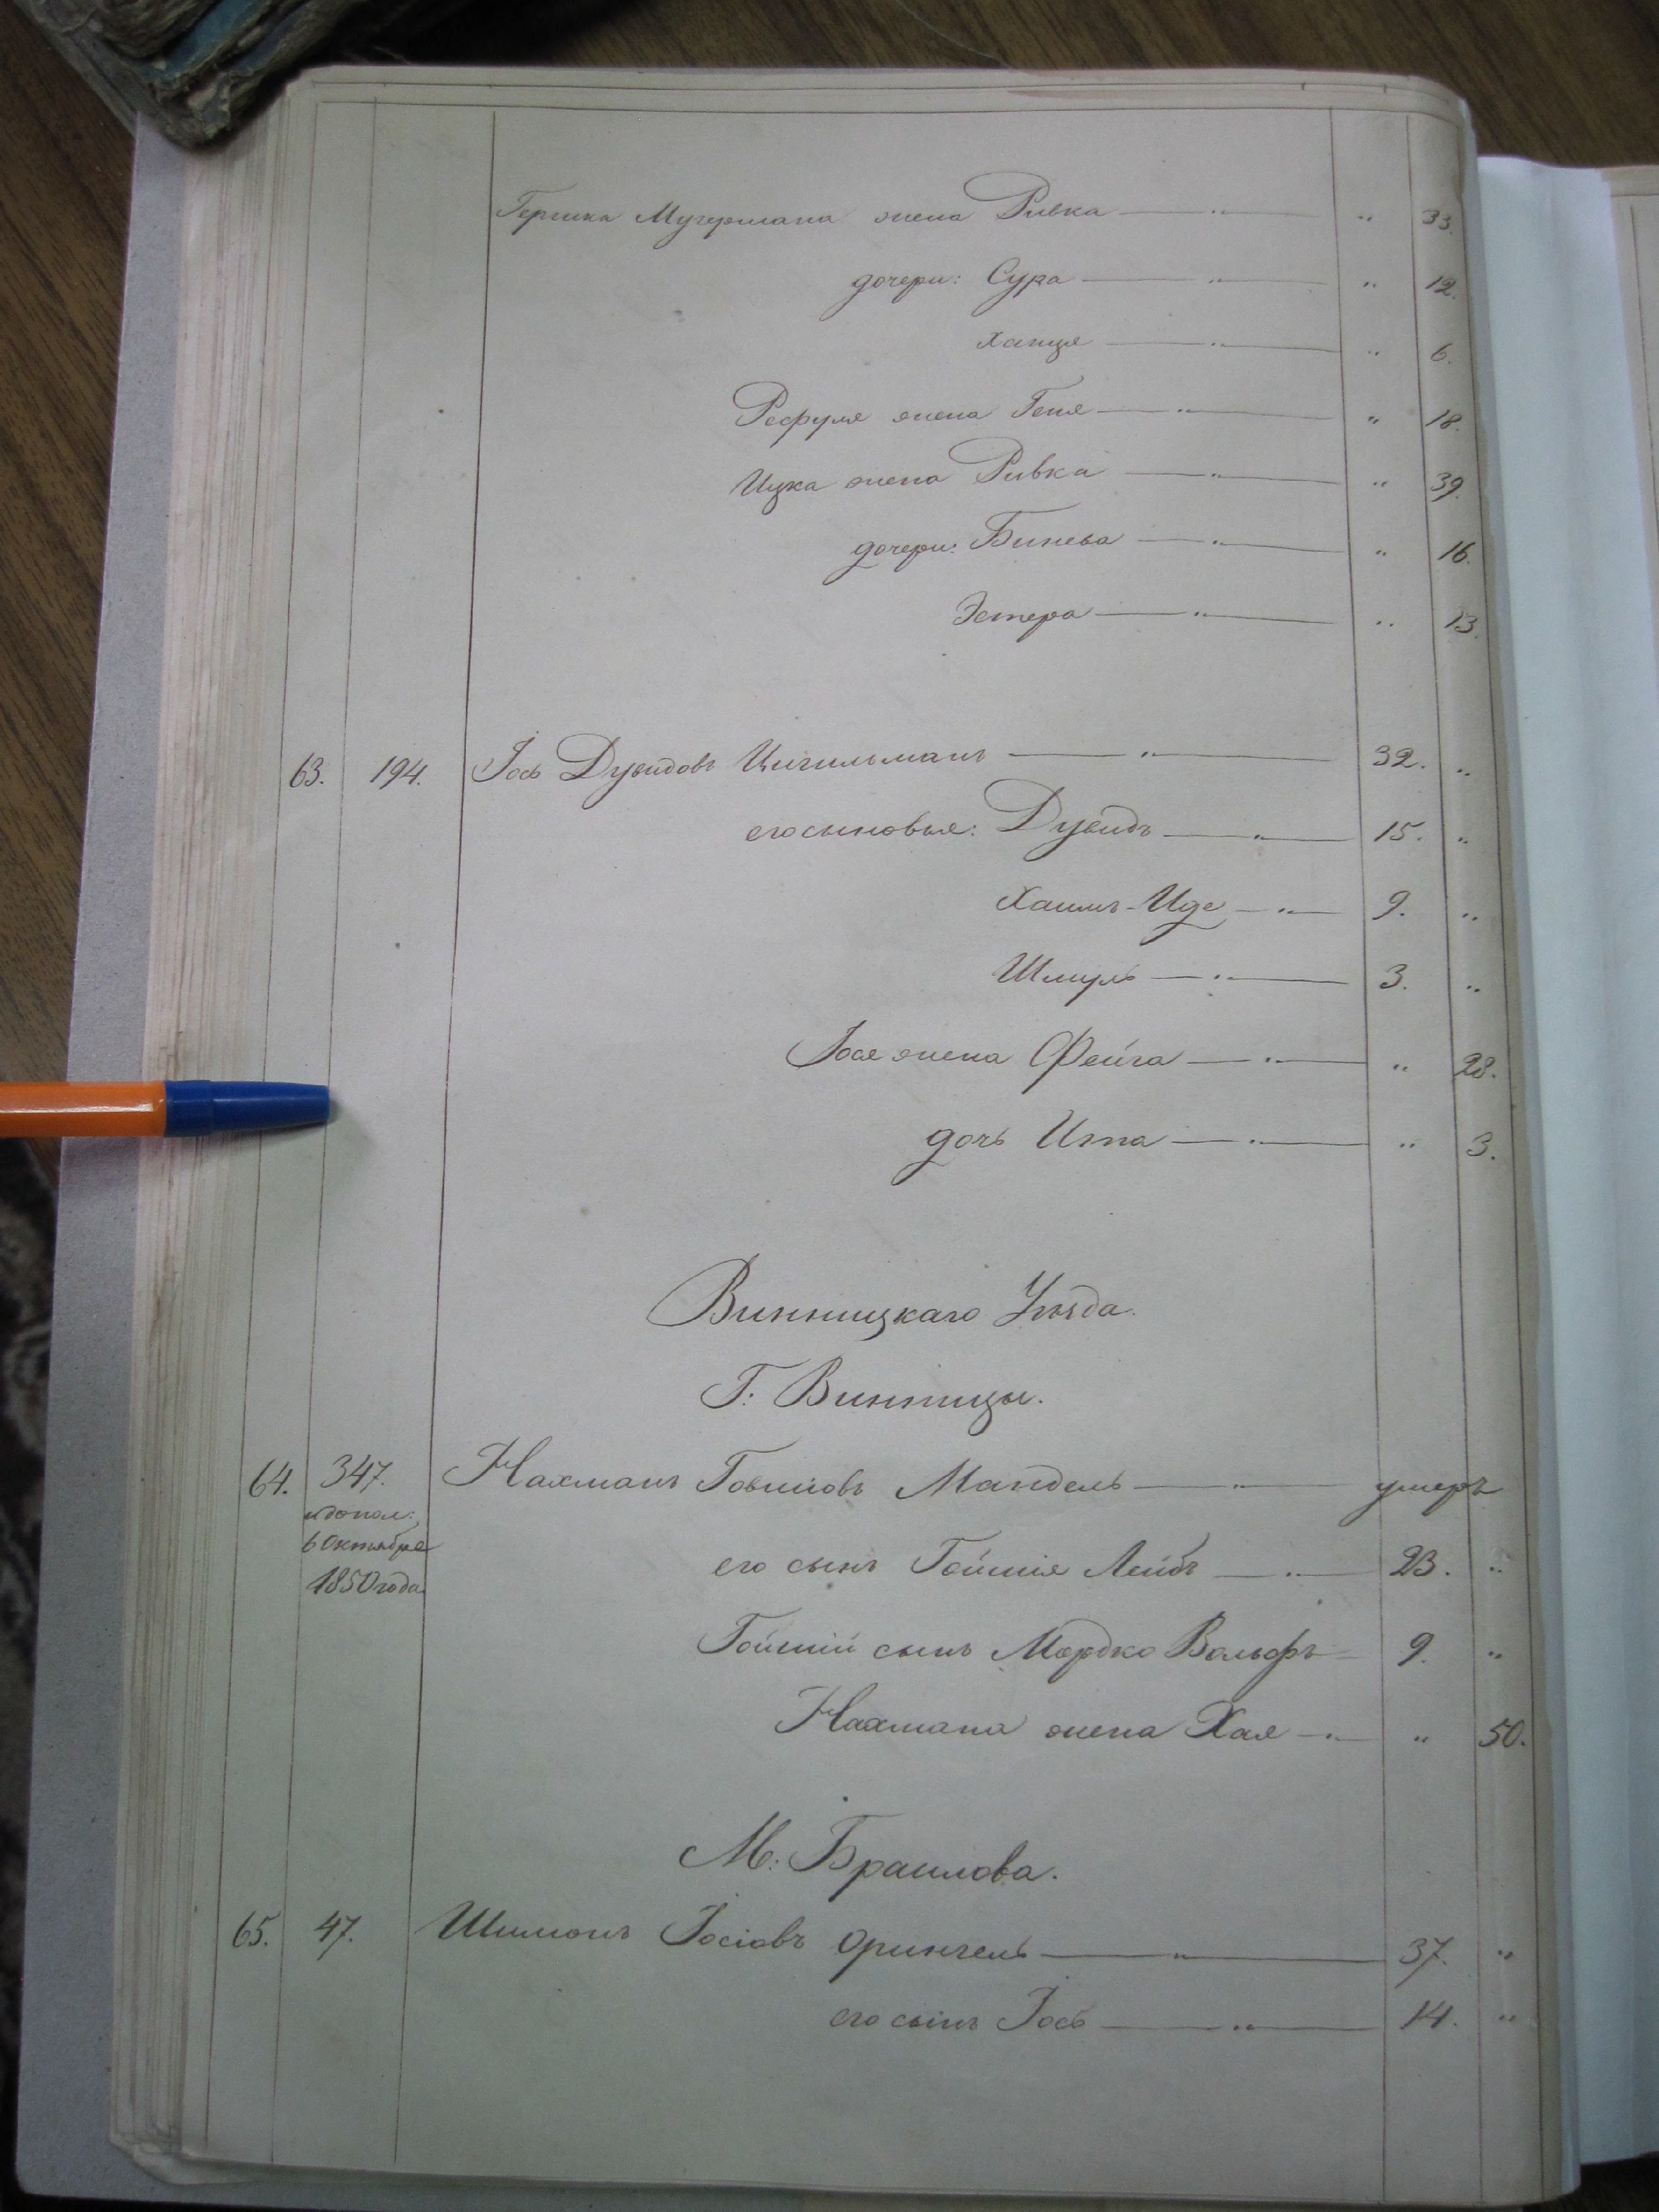 Гершка Мучермана жена Ривка — " — " 33.
дочери: Сура — " — " 12.
Ханця — " — " 6.
Рефуля жена Геня — " — " 18.
Ицка жена Ривка — " — " 39.
дочери: Бинева — " — " 16.
Эстера — " — " 13.
63. 194. Іось Дувидовъ Цигильманъ — " — 32. "
его сыновья: Дувидъ — " — 15. "
Хаимъ-Иде — " — 9. "
Шмуль — " — 3. "
Іося жена Фейга — " — " 28.
дочь Ита — " — " 3.
Винницкаго Уѣзда.
Г: Винницы.
64. 347. Нахманъ Говшіовъ Мандель — " — умеръ
и допол:
6 Октября
1850 года
его сынъ Гойшія Лейбъ — " — 23. "
Гойшіи сынъ Мордко Вольфъ — 9. "
Нахмана жена Хая — " — " 50.
М: Браилова.
65. 47. Шимонъ Іосіовъ Орингель — " — 37. "
его сынъ Іось — " — 14. "